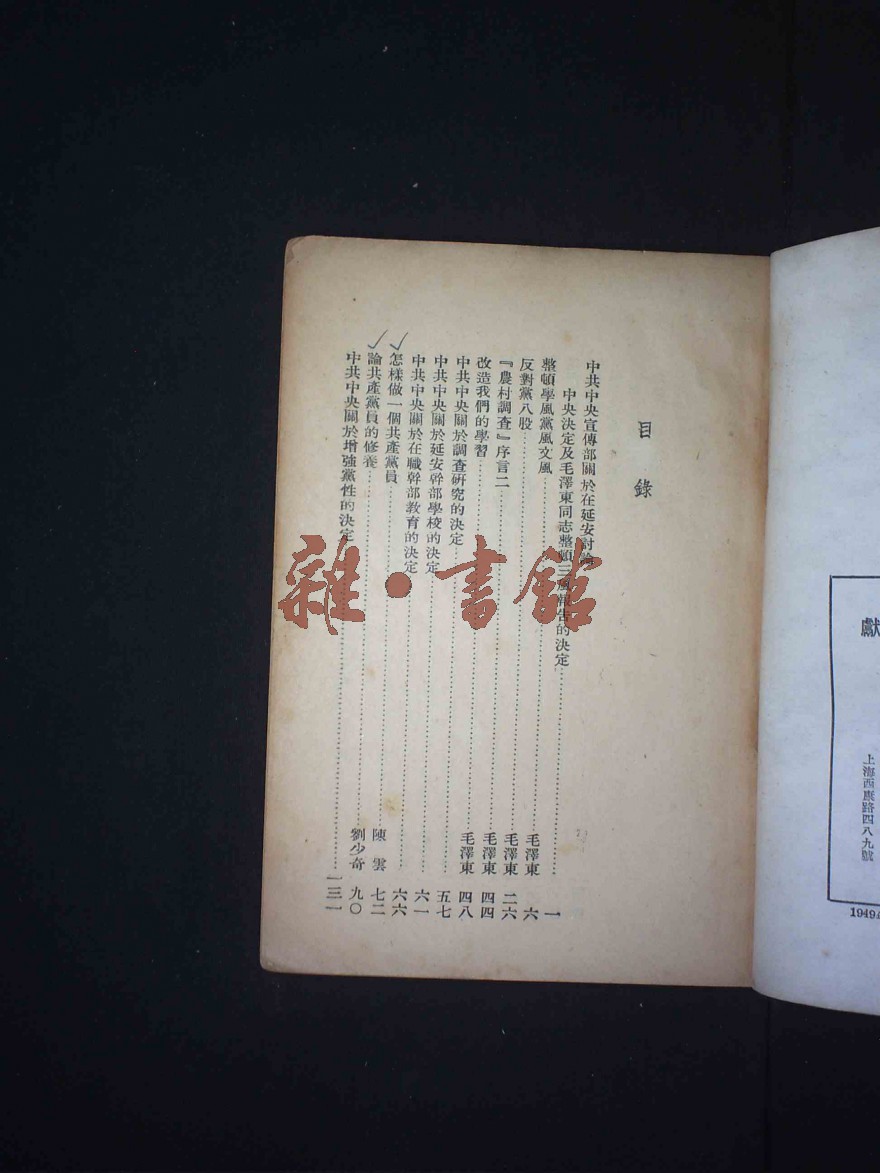 獻
上海西康路四八九號
1949
目錄
中共中央宣傳部關於在延安討論
中央決定及毛澤東同志整頓三風報告的決定……一
整頓學風黨風文風……毛澤東 六
反對黨八股……毛澤東 二六
『農村調查』序言二……毛澤東 四四
改造我們的學習……毛澤東 四八
中共中央關於調查研究的決定……五七
中共中央關於延安幹部學校的決定……六一
中共中央關於在職幹部教育的決定……六六
怎樣做一個共產黨員……陳雲 七二
論共產黨員的修養……劉少奇 九〇
中共中央關於增強黨性的決定……一三一
雜·書館